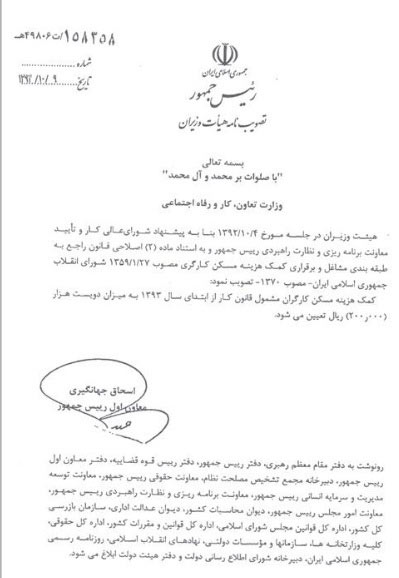 ۱۵۸۳۵۸/ت۴۹۸۰۶هـ
شماره ....................
تاریخ ۱۳۹۲/۱۰/۰۹
جمهوری اسلامی ایران
رئیس جمهور
تصویب نامه هیأت وزیران
بسمه تعالی
"با صلوات بر محمد و آل محمد"
وزارت تعاون، کار و رفاه اجتماعی
هیئت وزیران در جلسه مورخ ۱۳۹۲/۱۰/۴ بنا به پیشنهاد شورای‌عالی کار و تأیید
معاونت برنامه ریزی و نظارت راهبردی رییس جمهور و به استناد ماده (۲) اصلاحی قانون راجع به
طبقه بندی مشاغل و برقراری کمک هزینه مسکن کارگری مصوب ۱۳۵۹/۱/۲۷ شورای انقلاب
جمهوری اسلامی ایران- مصوب ۱۳۷۰- تصویب نمود:
کمک هزینه مسکن کارگران مشمول قانون کار از ابتدای سال ۱۳۹۳ به میزان دویست هزار
(۲۰۰٫۰۰۰) ریال تعیین می شود.
اسحاق جهانگیری
معاون اول رییس جمهور
رونوشت به دفتر مقام معظم رهبری، دفتر رییس جمهور، دفتر رییس قوه قضاییه، دفتر معاون اول
رییس جمهور، دبیرخانه مجمع تشخیص مصلحت نظام، معاونت حقوقی رییس جمهور، معاونت توسعه
مدیریت و سرمایه انسانی رییس جمهور، معاونت برنامه ریزی و نظارت راهبردی رییس جمهور،
معاونت امور مجلس رییس جمهور، دیوان محاسبات کشور، دیوان عدالت اداری، سازمان بازرسی
کل کشور، اداره کل قوانین مجلس شورای اسلامی، اداره کل قوانین و مقررات کشور، اداره کل حقوقی،
کلیه وزارتخانه ها، سازمانها و مؤسسات دولتی، نهادهای انقلاب اسلامی، روزنامه رسمی
جمهوری اسلامی ایران، دبیرخانه شورای اطلاع رسانی دولت و دفتر هیئت دولت ابلاغ می شود.